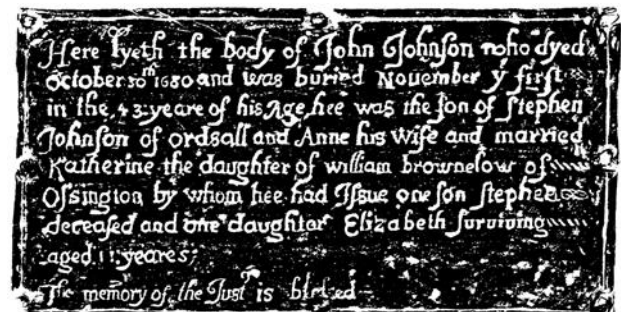 Here lyeth the body of John Johnſon who dyed
October 30th 1680 and was buried November ẏ firſt
in the 43 yeare of his Age hee was the ſon of Stephen
Johnſon of ordſall and Anne his Wife and married
Katherine the daughter of william brownelow of
Oſſington by whom hee had Iſſue one ſon ſtephen
deceaſed and one daughter Elizabeth ſurviving
aged 11 yeares
The memory of the Juſt is bleſſed